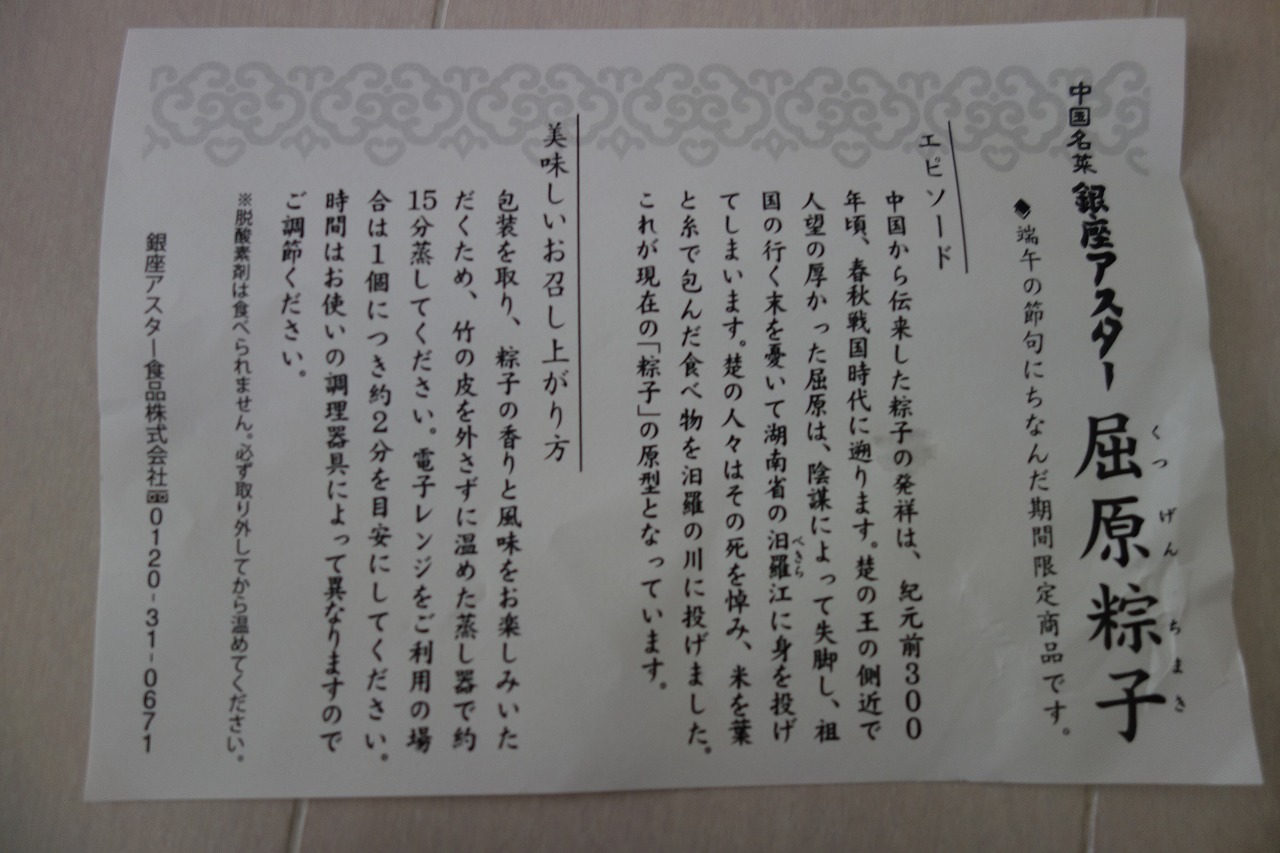 中国名菜 銀座アスター 屈原粽子
くつげん ちまき
◆端午の節句にちなんだ期間限定商品です。
エピソード
中国から伝来した粽子の発祥は、紀元前300
年頃、春秋戦国時代に遡ります。楚の王の側近で
人望の厚かった屈原は、陰謀によって失脚し、祖
国の行く末を憂いて湖南省の汨羅江に身を投げ
べきら
てしまいます。楚の人々はその死を悼み、米を葉
と糸で包んだ食べ物を汨羅の川に投げました。
これが現在の「粽子」の原型となっています。
美味しいお召し上がり方
包装を取り、粽子の香りと風味をお楽しみいた
だくため、竹の皮を外さずに温めた蒸し器で約
15分蒸してください。電子レンジをご利用の場
合は1個につき約2分を目安にしてください。
時間はお使いの調理器具によって異なりますので
ご調節ください。
※脱酸素剤は食べられません。必ず取り外してから温めてください。
銀座アスター食品株式会社 0120-31-0671